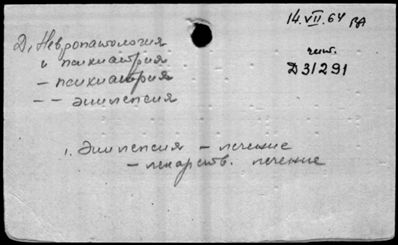 14.VII.64 РА
чит.
Д31291
Д, Невропатология
и психиатрия
– психиатрия
– – эпилепсия
1. Эпилепсия – лечение
– лекарств. лечение